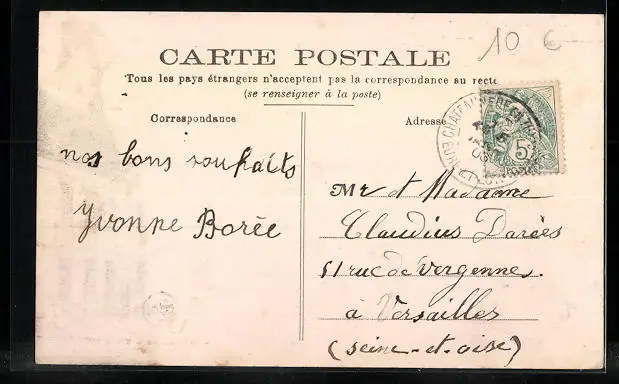 10 €
CARTE POSTALE
Tous les pays étrangers n'acceptent pas la correspondance au recto
(se renseigner à la poste)
Correspondance
Adresse
5c
nos bons souhaits
Yvonne Borée
Mr et Madame
Claudius Darées
51 rue de Vergennes.
à Versailles
(Seine-et-oise)